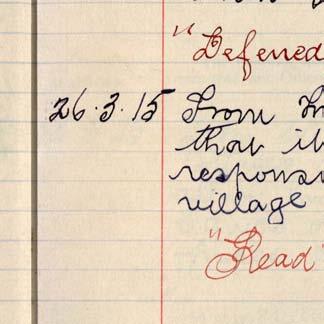 "Defened
26.3.15 From
that it
respons
village
"Read